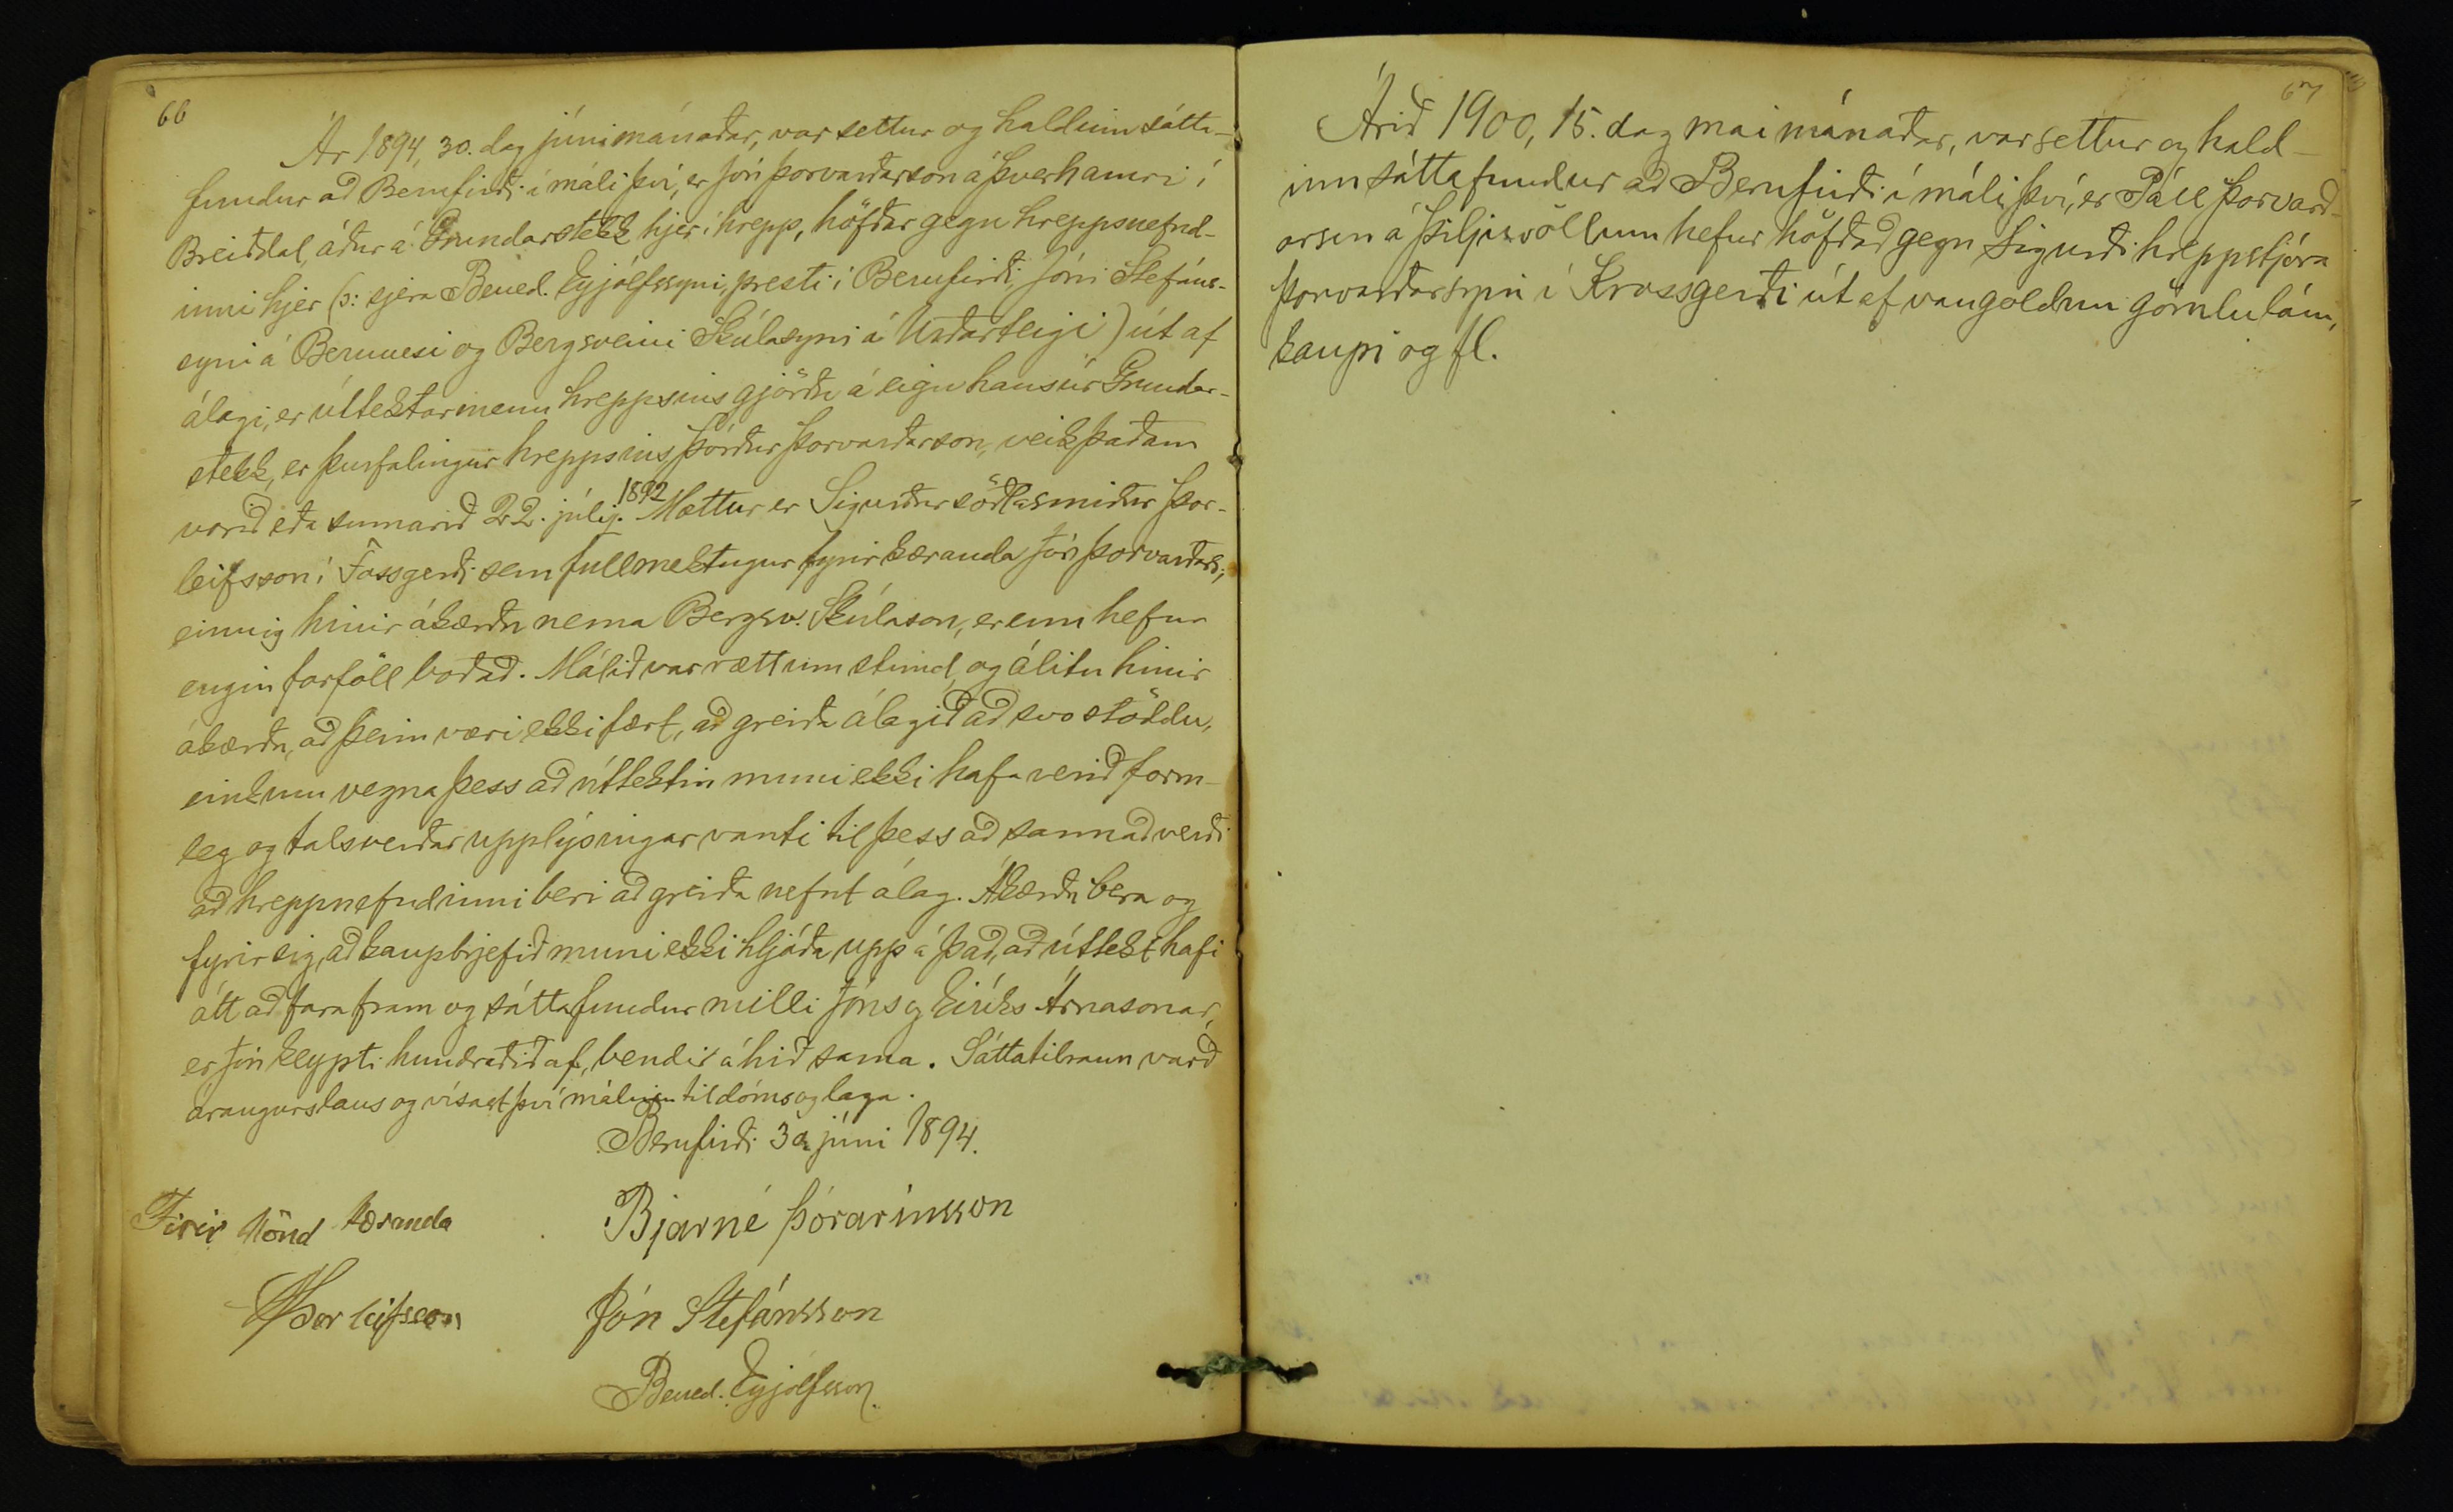 66
Ár 1894, 30. dag júnimánaðar, var settur og haldinn sátta-
fundur að Berufirði í máli því, er Jón Þorvarðarson á Þverhamri í
Breiðdal, áður á Grundarstekk hjer í hrepp, höfðar gegn hreppsnefnd-
inni hjer (ɔ: sjera Bened. Eyjólfssyni, presti í Berufirði, Jóni Stefáns-
syni á Berunesi og Bergsveini Skúlasyni á Urðarteigi) út af
álagi, er úttektarmenn hreppsins gjörðu á eign hans úr Grundar-
stekk, er þurfalingur hreppsins, Þórður Þorvarðarson, veik þaðan
vorið eða sumarið 22. júlí. 1892 Mættur er Sigurður söðlasmiður Þor-
leifsson í Fossgerði sem fullmektugur fyrir kæranda Jón Þorvarðars,
einnig hinir ákærðu nema Bergsv. Skúlason, er enn hefur
engin forföll boðað. Málið var rætt um stund, og álitu hinir
ákærðu, að þeim væri ekki fært, að greiða álagið að svo stöddu,
einkum vegna þess að úttektin muni ekki hafa verið form-
leg og talsverðar upplýsingar vanti til þess að sannað verði
að hreppnefndinni beri að greiða nefnt álag. Ákærðu bera og
fyrir sig, að kaupbrjefið muni ekki hljóða upp á það, að úttekt hafi
átt að fara fram og sáttafundur milli Jóns og Eiríks Árnasonar,
er Jón keypti hundraðið af, bendir á hið sama. Sáttatilraun varð
árangurslaus og vísast því málinu til dóms og laga.
Berufirði 30 júni 1894.
Firir hönd kæranda
Bjarne Þórarinsson
Þorleifsson
Jón Stefánsson
Bened. Eyjólfsson.
67
Árið 1900, 15. dag mai mánaðar, var settur og hald-
inn sáttafundur að Berufirði í máli því, er Páll Þorvarð-
arson á Þiljuvöllum hefur höfðað gegn Sigurði hreppstjóra
Þorvarðarsyni í Krossgerði út af vangoldnu gömlu láni,
kaupi og fl.